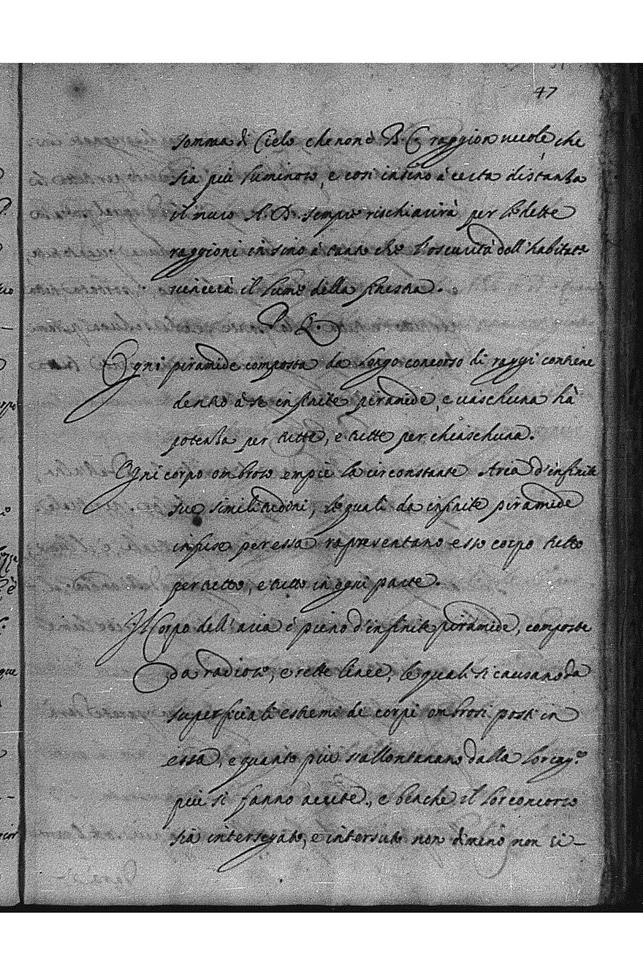 47
somma di Cielo che non è B. C. raggion vuole che
sia più luminoso, e così insino à certa distanza
il muro A. D. sempre rischiarirà per le dette
raggioni insino à tanto che l'oscurità dell'habitat.e
vincerà il lume della finestra.
P. L.
Ogni piramide composta da longo concorso di raggi contiene
dentro à se infinite piramide, e ciaschuna hà
potenza per tutte, e tutte per chiaschuna.
Ogni corpo ombroso empie la circonstante Aria d'infinite
sue similitudini, le quali da infinite piramide
infuse per essa rapresentano esso corpo tutto
per tutto, e tutto in ogni parte.
Il Corpo dell'aria è pieno d'infinite piramide, composte
da radiose, e rette linee, le quali si causano da
superficiali estremi de corpi ombrosi posti in
essa, e quanto più s'allontanano dalla lor cag.ne
più si fanno acute, e benche il lor concorso
sia intersegato, e intersuto non dimeno non si-